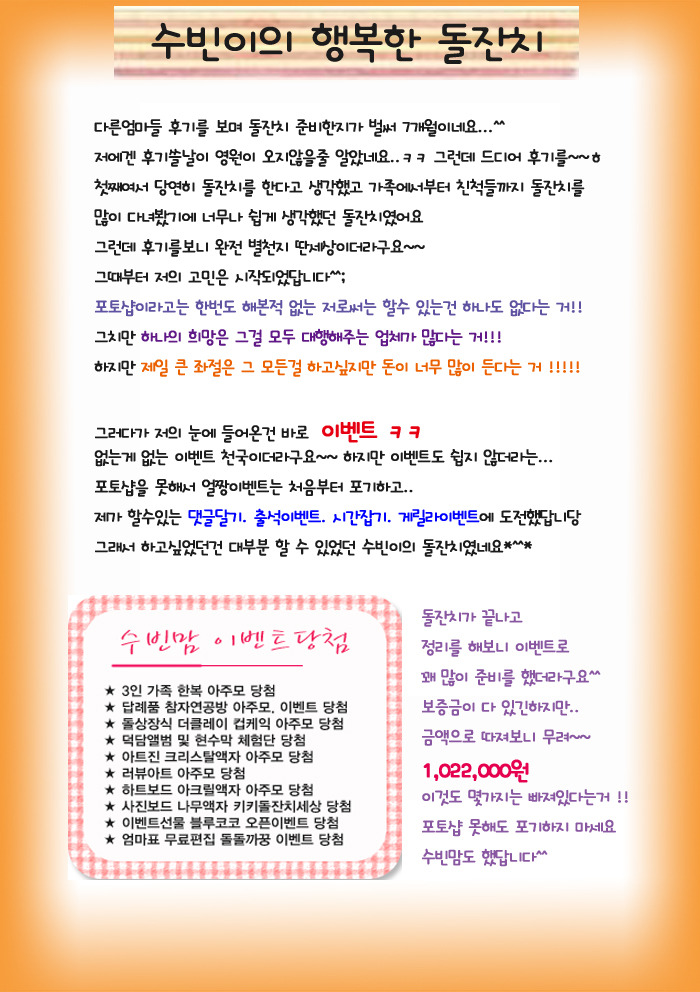 수빈이의 행복한 돌잔치
다른엄마들 후기를 보며 돌잔치 준비한지가 벌써 7개월이네요...^^
저에겐 후기쓸날이 영원이 오지않을줄 알았네요..ㅋㅋ 그런데 드디어 후기를~~ㅎ
첫째여서 당연히 돌잔치를 한다고 생각했고 가족에서부터 친척들까지 돌잔치를
많이 다녀봤기에 너무나 쉽게 생각했던 돌잔치였어요
그런데 후기를보니 완전 별천지 딴세상이더라구요~~
그때부터 저의 고민은 시작되었답니다^^;
포토샵이라고는 한번도 해본적 없는 저로써는 할수 있는건 하나도 없다는 거!!
그치만 하나의 희망은 그걸 모두 대행해주는 업체가 많다는 거!!!
하지만 제일 큰 좌절은 그 모든걸 하고싶지만 돈이 너무 많이 든다는 거 !!!!!
그러다가 저의 눈에 들어온건 바로 이벤트 ㅋㅋ
없는게 없는 이벤트 천국이더라구요~~ 하지만 이벤트도 쉽지 않더라는...
포토샵을 못해서 얼짱이벤트는 처음부터 포기하고..
제가 할수있는 댓글달기. 출석이벤트. 시간잡기. 게릴라이벤트에 도전했답니당
그래서 하고싶었던건 대부분 할 수 있었던 수빈이의 돌잔치였네요*^^*
수빈맘 이벤트당첨
★ 3인 가족 한복 아주모 당첨
★ 답례품 참자연공방 아주모. 이벤트 당첨
★ 돌상장식 더클레이 컵케익 아주모 당첨
★ 덕담앨범 및 현수막 체험단 당첨
★ 아트진 크리스탈액자 아주모 당첨
★ 러뷰아트 아주모 당첨
★ 하트보드 아크릴액자 아주모 당첨
★ 사진보드 나무액자 키키돌잔치세상 당첨
★ 이벤트선물 블루코코 오픈이벤트 당첨
★ 엄마표 무료편집 돌돌까꿍 이벤트 당첨
돌잔치가 끝나고
정리를 해보니 이벤트로
꽤 많이 준비를 했더라구요^^
보증금이 다 있긴하지만..
금액으로 따져보니 무려~~
1,022,000원
이것도 몇가지는 빠져있다는거 !!
포토샵 못해도 포기하지 마세요
수빈맘도 했답니다^^